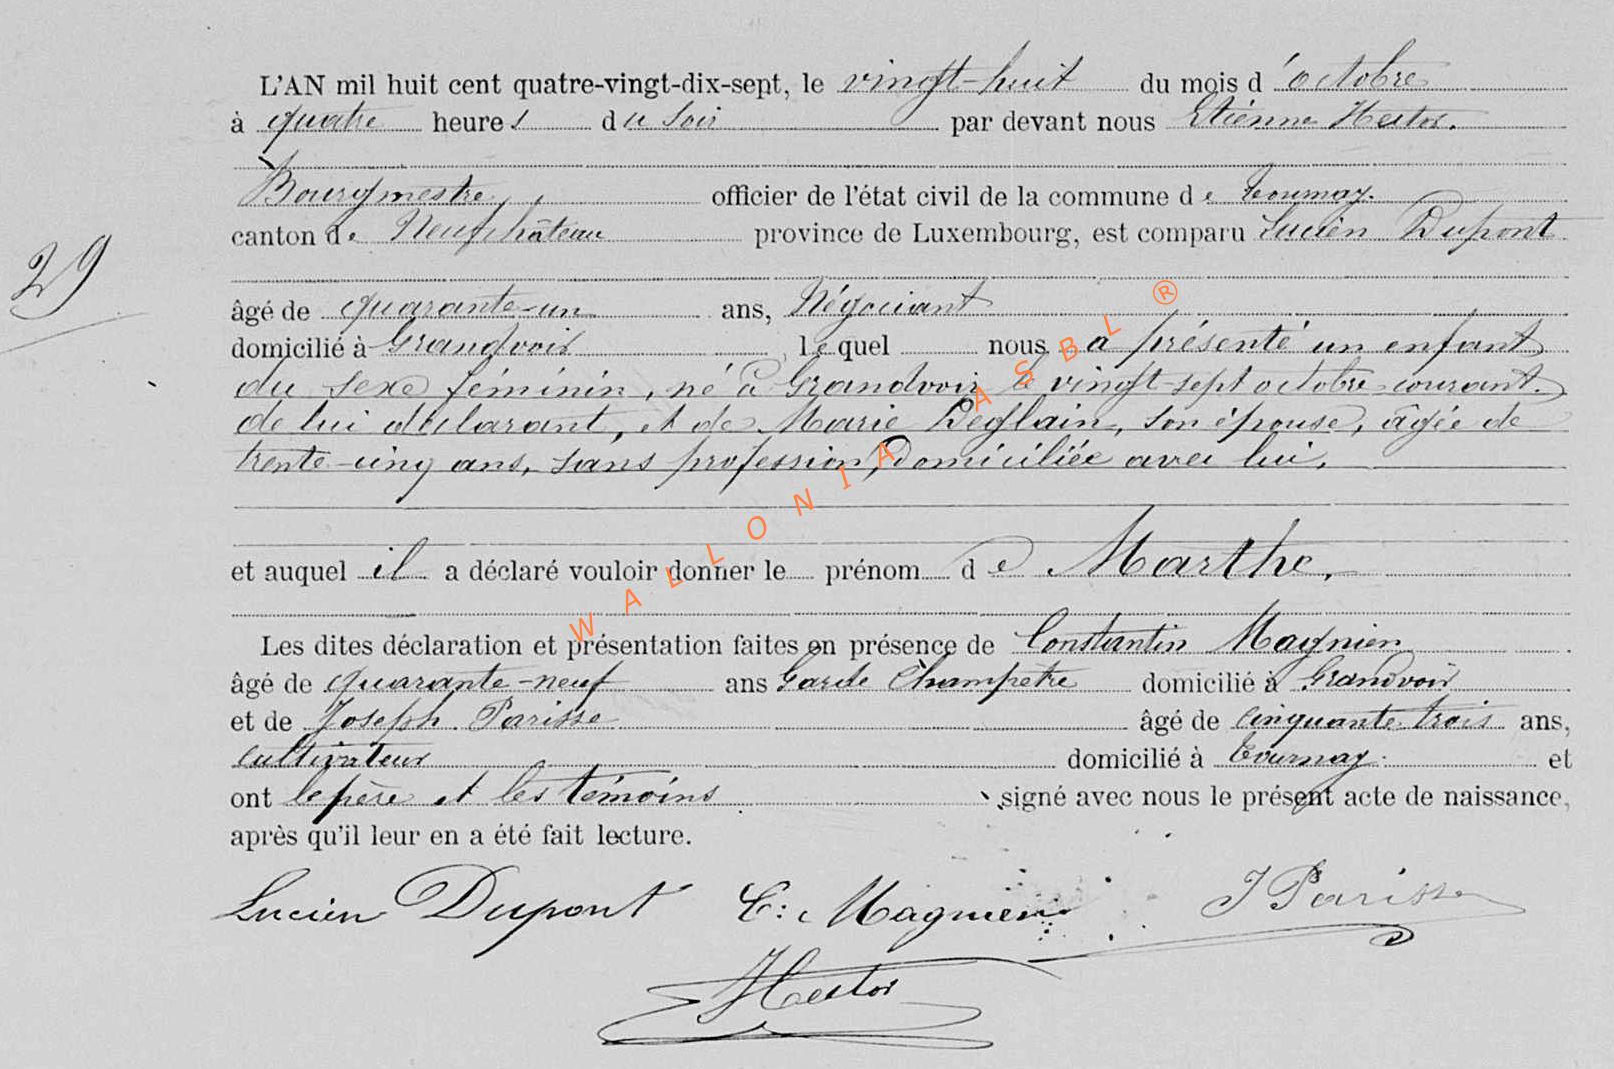 L'AN mil huit cent quatre-vingt-dix-sept, le vingt-huit du mois d'octobre
à quatre heures du soir par devant nous Etienne Hector.
Bourgmestre officier de l'état civil de la commune de Tournay.
canton de Neufchâteau province de Luxembourg, est comparu Lucien Dupont
29
âgé de quarante-un ans, Négociant
domicilié à Grandvoir lequel nous a présenté un enfant
du sexe féminin, né à Grandvoir le vingt-sept octobre courant.
de lui déclarant, et de Marie Deglain, son épouse, âgée de
trente-cinq ans, sans profession, domiciliée avec lui.
et auquel il a déclaré vouloir donner le prénom de Marthe.
Les dites déclaration et présentation faites en présence de Constantin Magnien
âgé de quarante-neuf ans Garde Champetre domicilié à Grandvoir
et de Joseph Parisse âgé de cinquante-trois ans,
cultivateur domicilié à Tournay. et
ont le père et les témoins signé avec nous le présent acte de naissance,
après qu'il leur en a été fait lecture.
Lucien Dupont C: Magnien J Parisse
Hector
WALLONIA ASBL ®